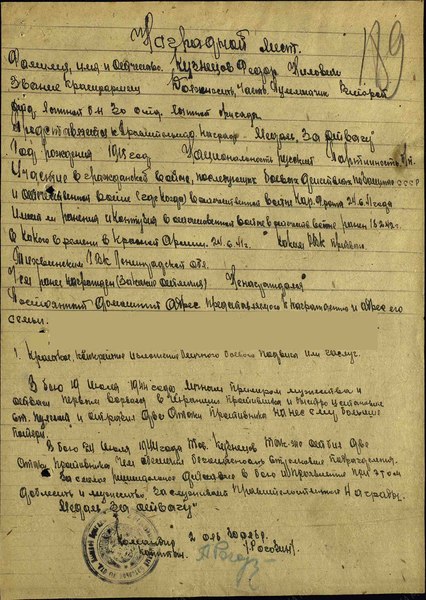 189
Наградной лист.
Фамилия, имя и отчество. Кузнецов Федор
Звание Красноармеец Должность, часть. Пулеметчик Второй
лыжной бригады.
Представляется к Правительств. награде Медаль "За отвагу"
Год рождения 1915 году Национальность русский Партийность
Участие в гражданской войне, последующих боевых действиях по защите СССР
и отечественной войне (где, когда) В отечественной войне Кар. фронт 24.6.41 года
Имеет ли ранения и контузии в отечественной войне
С какого времени в Красной Армии. 24.6.41г. Каким РВК призван.
Тихвинским РВК Ленинградской обл.
Чем ранее награжден (за какие отличия) Не награждался
Постоянный домашний адрес представляемого к награждению и адрес его
семьи.
1. Краткое, конкретное изложение личного боевого подвига или заслуг.
В бою 19 Июля 1944 года личным примером мужества и
отваги первым ворвался в траншею противника и быстро установив
ст. пулемет и отразив две атаки противника нанес ему большие
потери.
В бою 24 Июля 1944 года тов. Кузнецов так-же отбил две
атаки противника чем обеспечил безопасность подразделения.
За смелое решительное действие в бою и проявленные при этом
доблесть и мужество, заслуживает Правительственной Награды
Медаль "За отвагу"
Командир 2 олб 30 олбр.
капитан